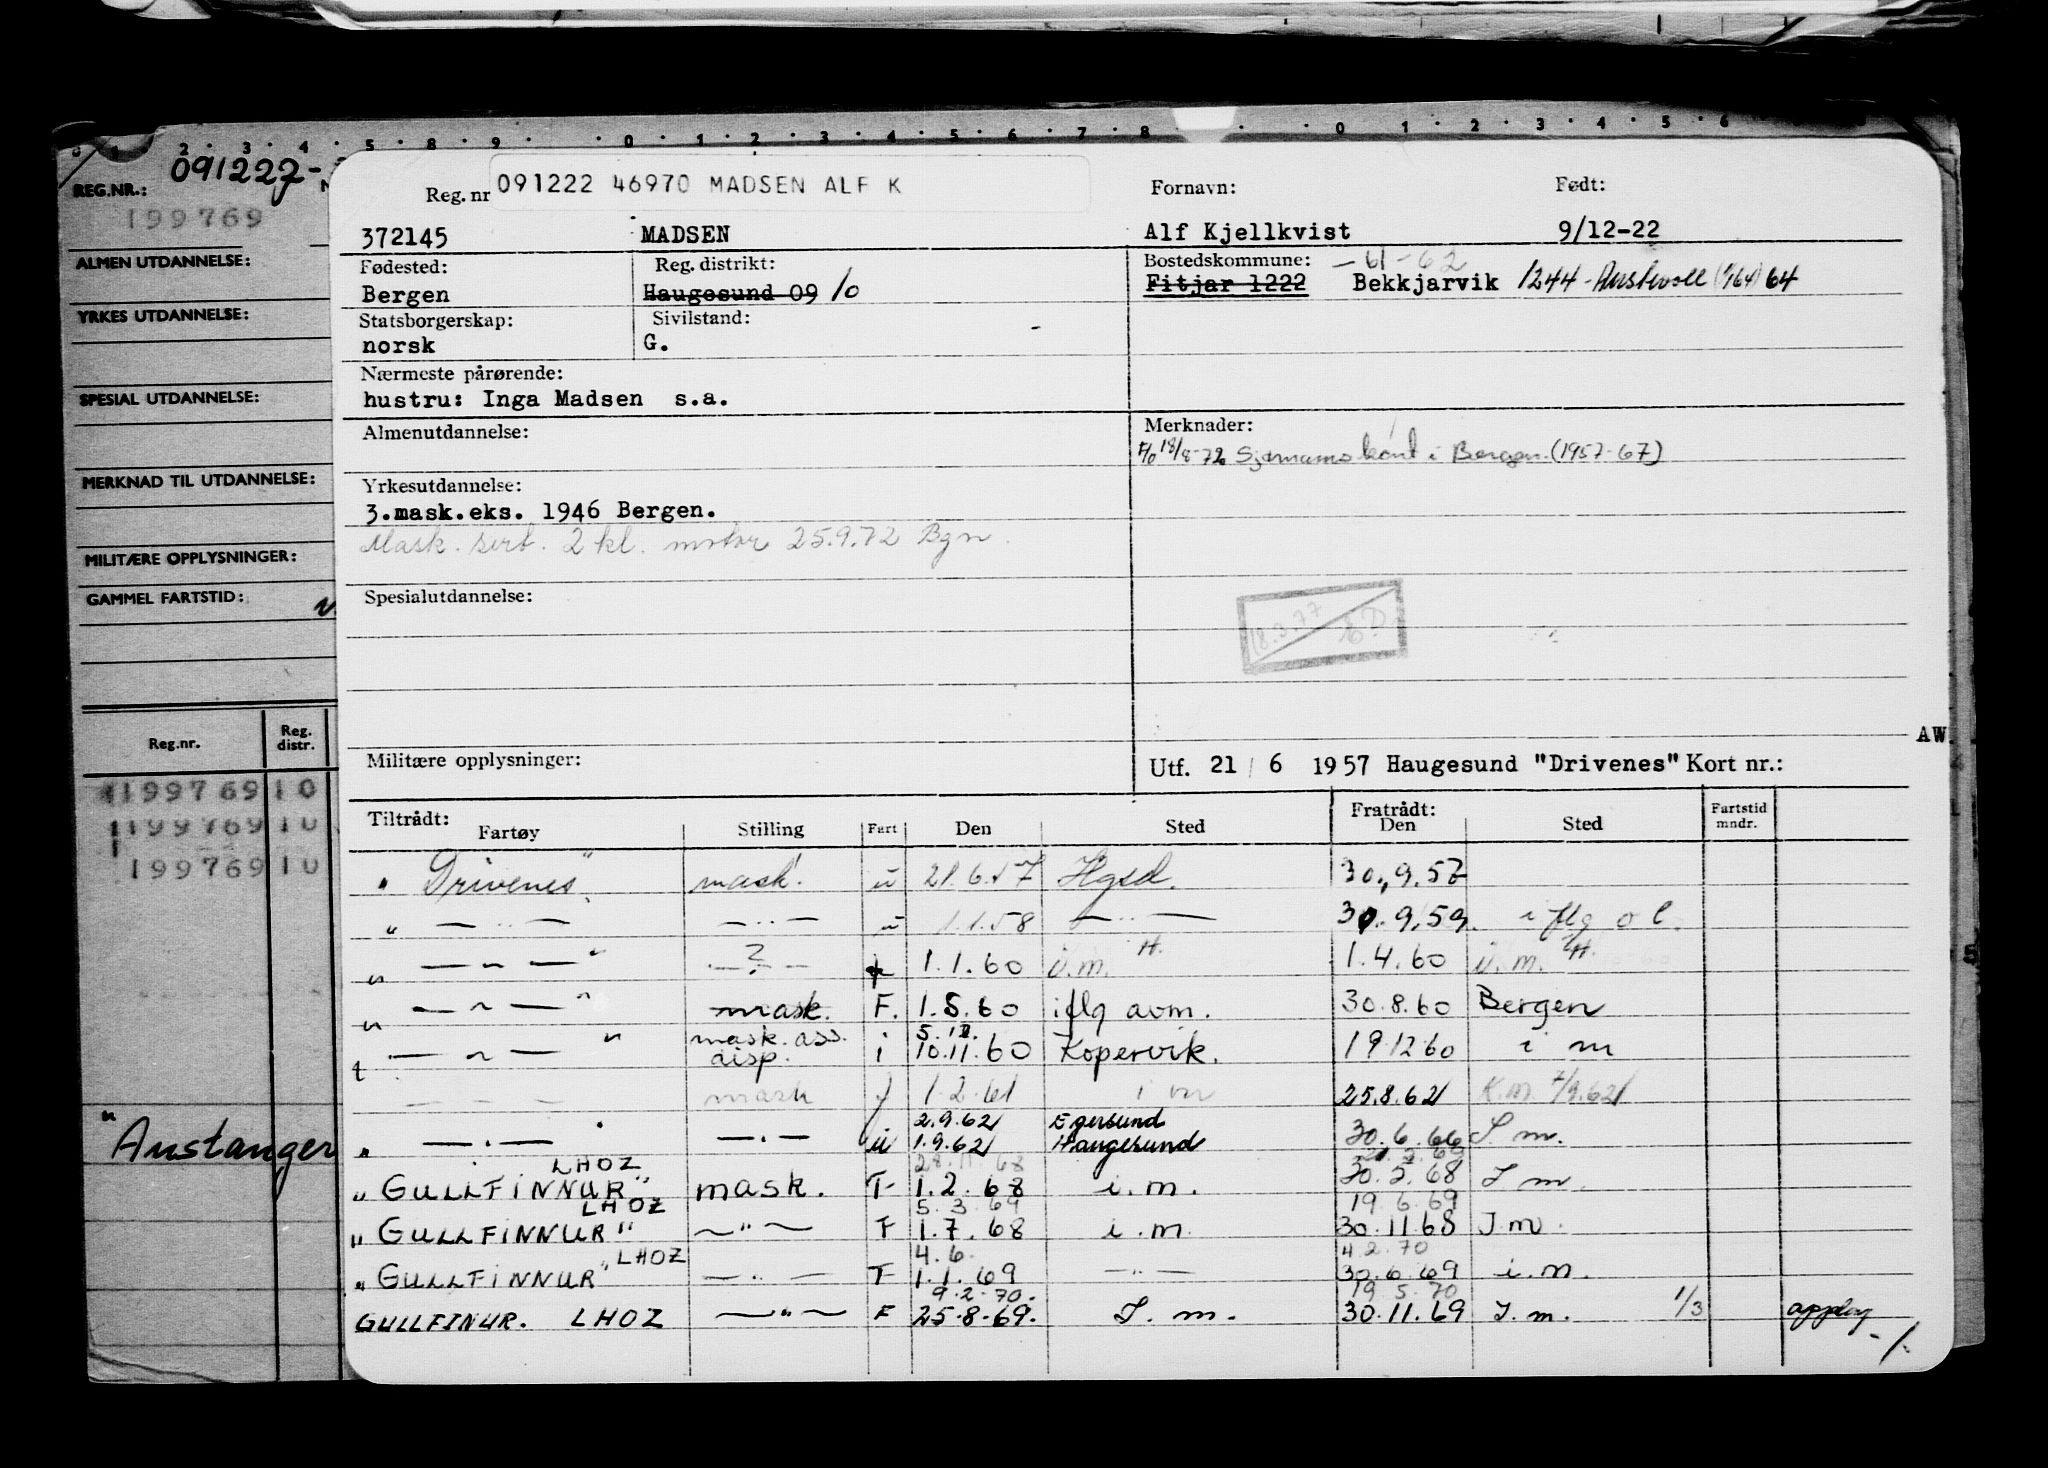 0 1 2 3 4 5 6 7 8 9 0 1 2 3 4 5 6 7 8 0 1 2 3 4 5 6
REG.NR.: 091222-
199769
ALMEN UTDANNELSE:
YRKES UTDANNELSE:
SPESIAL UTDANNELSE:
MERKNAD TIL UTDANNELSE:
MILITÆRE OPPLYSNINGER:
GAMMEL FARTSTID:
Reg.nr. Reg. distr.
199769 10
199769 10
199769 10
"Austanger
Reg. nr 091222 46970 MADSEN ALF K Fornavn: Født:
372145 MADSEN Alf Kjellkvist 9/12-22
Fødested: Reg. distrikt: Bostedskommune: -61-62
Bergen Haugesund 09 10 Fitjar 1222 Bekkjarvik 1244 - Austevoll (1/64) 64
Statsborgerskap: Sivilstand:
norsk G.
Nærmeste pårørende:
hustru: Inga Madsen s.a.
Almenutdannelse: Merknader:
F/o 18/8-72 Sjømannskont i Bergen (1957-67)
Yrkesutdannelse:
3.mask.eks. 1946 Bergen.
Mask. sert. 2 kl. motor 25.9.72 Bgn.
Spesialutdannelse:
18.3.77
AW
Militære opplysninger: Utf. 21 / 6 1957 Haugesund "Drivenes" Kort nr.:
Tiltrådt: Fratrådt: Fartstid
Fartøy Stilling Fart Den Sted Den Sted mndr.
" Drivenes" mask. u 21.6.57 Hgsd. 30.9.57
" — .. — — .. — u 1.1.58 — .. — 30.9.59. i flg o l.
" — " — " — ? — 1.1.60 i.m. H. 1.4.60 i.m. H.
" — " — " mask. F. 1.5.60 iflg avm. 30.8.60 Bergen
— " — " mask. ass. disp. i 5.12. 10.11.60 Kopervik. 19.12.60 i m
— — — mask f 1.2.61 i m 25.8.62 K.m. 7/9.62
2.9.62 Egersund
" — . — — . — u 1.9.62 Haugesund 30.6.66 I m.
LHOZ 28.11.68
" GULLFINNUR" mask. F 1.2.68 i.m. 30.5.68 I m.
LHOZ 5.3.69 19.6.69
" GULLFINNUR" — " — F 1.7.68 i.m. 30.11.68 I.m.
LHOZ 4.6. 4.2.70
" GULLFINNUR" — . — F 1.1.69 — " — 30.6.69 i.m.
9.2.70. 19.5.70
GULLFINUR. LHOZ — " — F 25.8.69. I.m. 30.11.69 I.m. 1/3 opplag